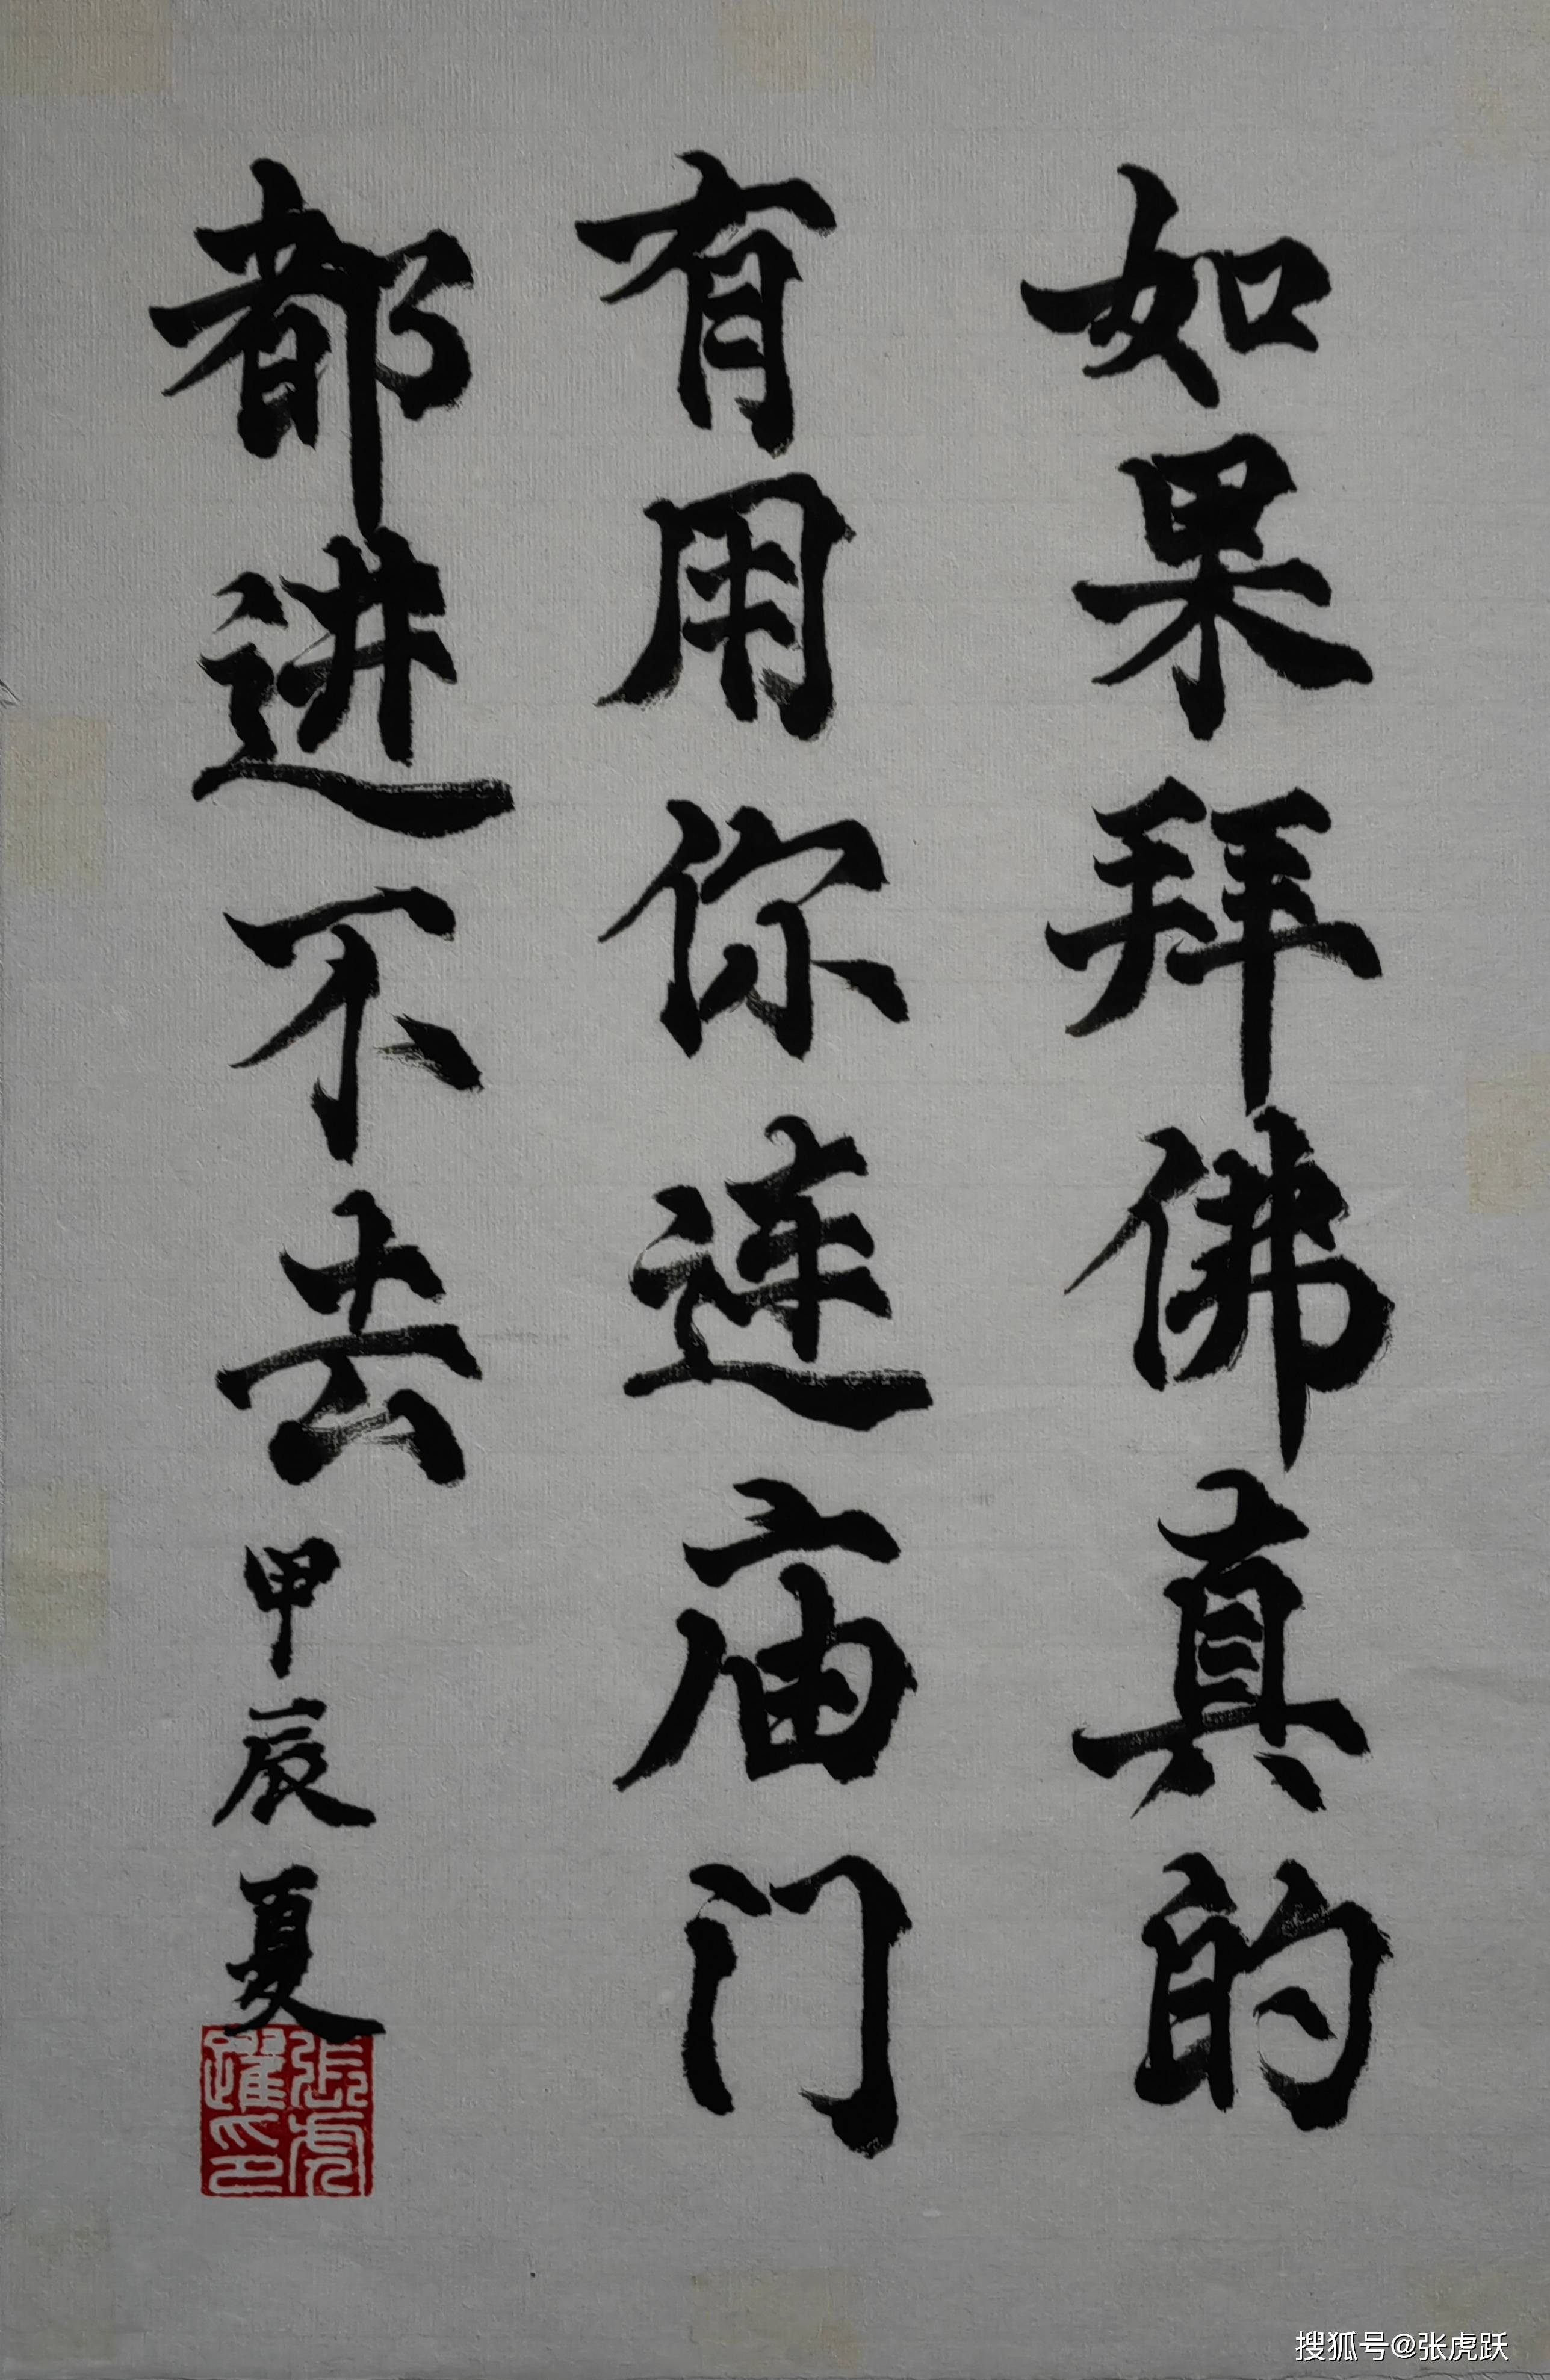 如果拜佛真的
有用你连庙门
都进不去
甲辰夏
張虎
躍印
搜狐号@张虎跃